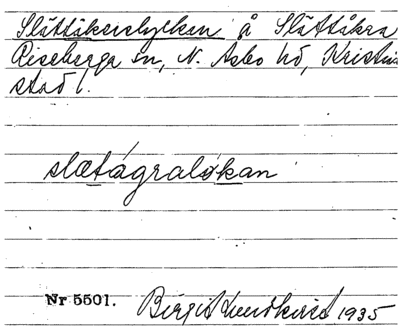 Slättåkershylken å Slättåkra
Riseberga sn, N. Asbo hd, Kristian
stad l.
slætågralókan
Nr 5501.
Birgit Lundkvist 1935